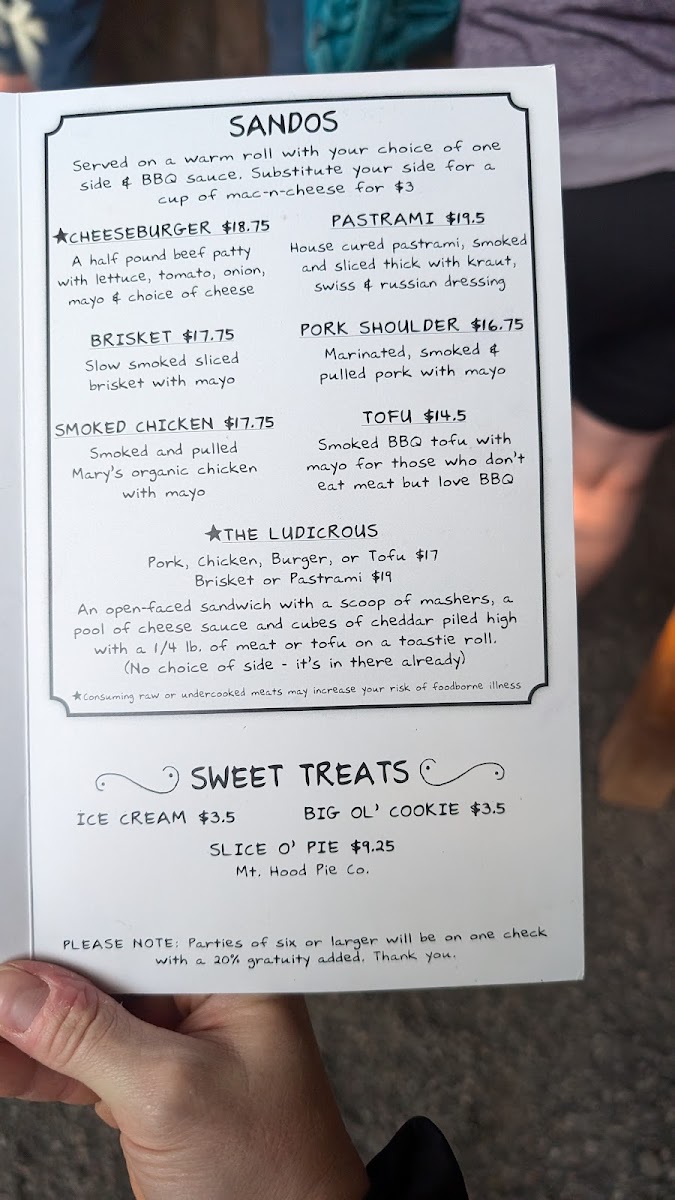 SANDOS
Served on a warm roll with your choice of one
side & BBQ sauce. Substitute your side for a
cup of mac-n-cheese for $3
★CHEESEBURGER $18.75
A half pound beef patty
with lettuce, tomato, onion,
mayo & choice of cheese
PASTRAMI $19.5
House cured pastrami, smoked
and sliced thick with kraut,
swiss & russian dressing
BRISKET $17.75
Slow smoked sliced
brisket with mayo
PORK SHOULDER $16.75
Marinated, smoked &
pulled pork with mayo
SMOKED CHICKEN $17.75
Smoked and pulled
Mary's organic chicken
with mayo
TOFU $14.5
Smoked BBQ tofu with
mayo for those who don't
eat meat but love BBQ
★THE LUDICROUS
Pork, Chicken, Burger, or Tofu $17
Brisket or Pastrami $19
An open-faced sandwich with a scoop of mashers, a
pool of cheese sauce and cubes of cheddar piled high
with a 1/4 lb. of meat or tofu on a toastie roll.
(No choice of side - it's in there already)
★Consuming raw or undercooked meats may increase your risk of foodborne illness
SWEET TREATS
ICE CREAM $3.5
BIG OL' COOKIE $3.5
SLICE O' PIE $9.25
Mt. Hood Pie Co.
PLEASE NOTE: Parties of six or larger will be on one check
with a 20% gratuity added. Thank you.